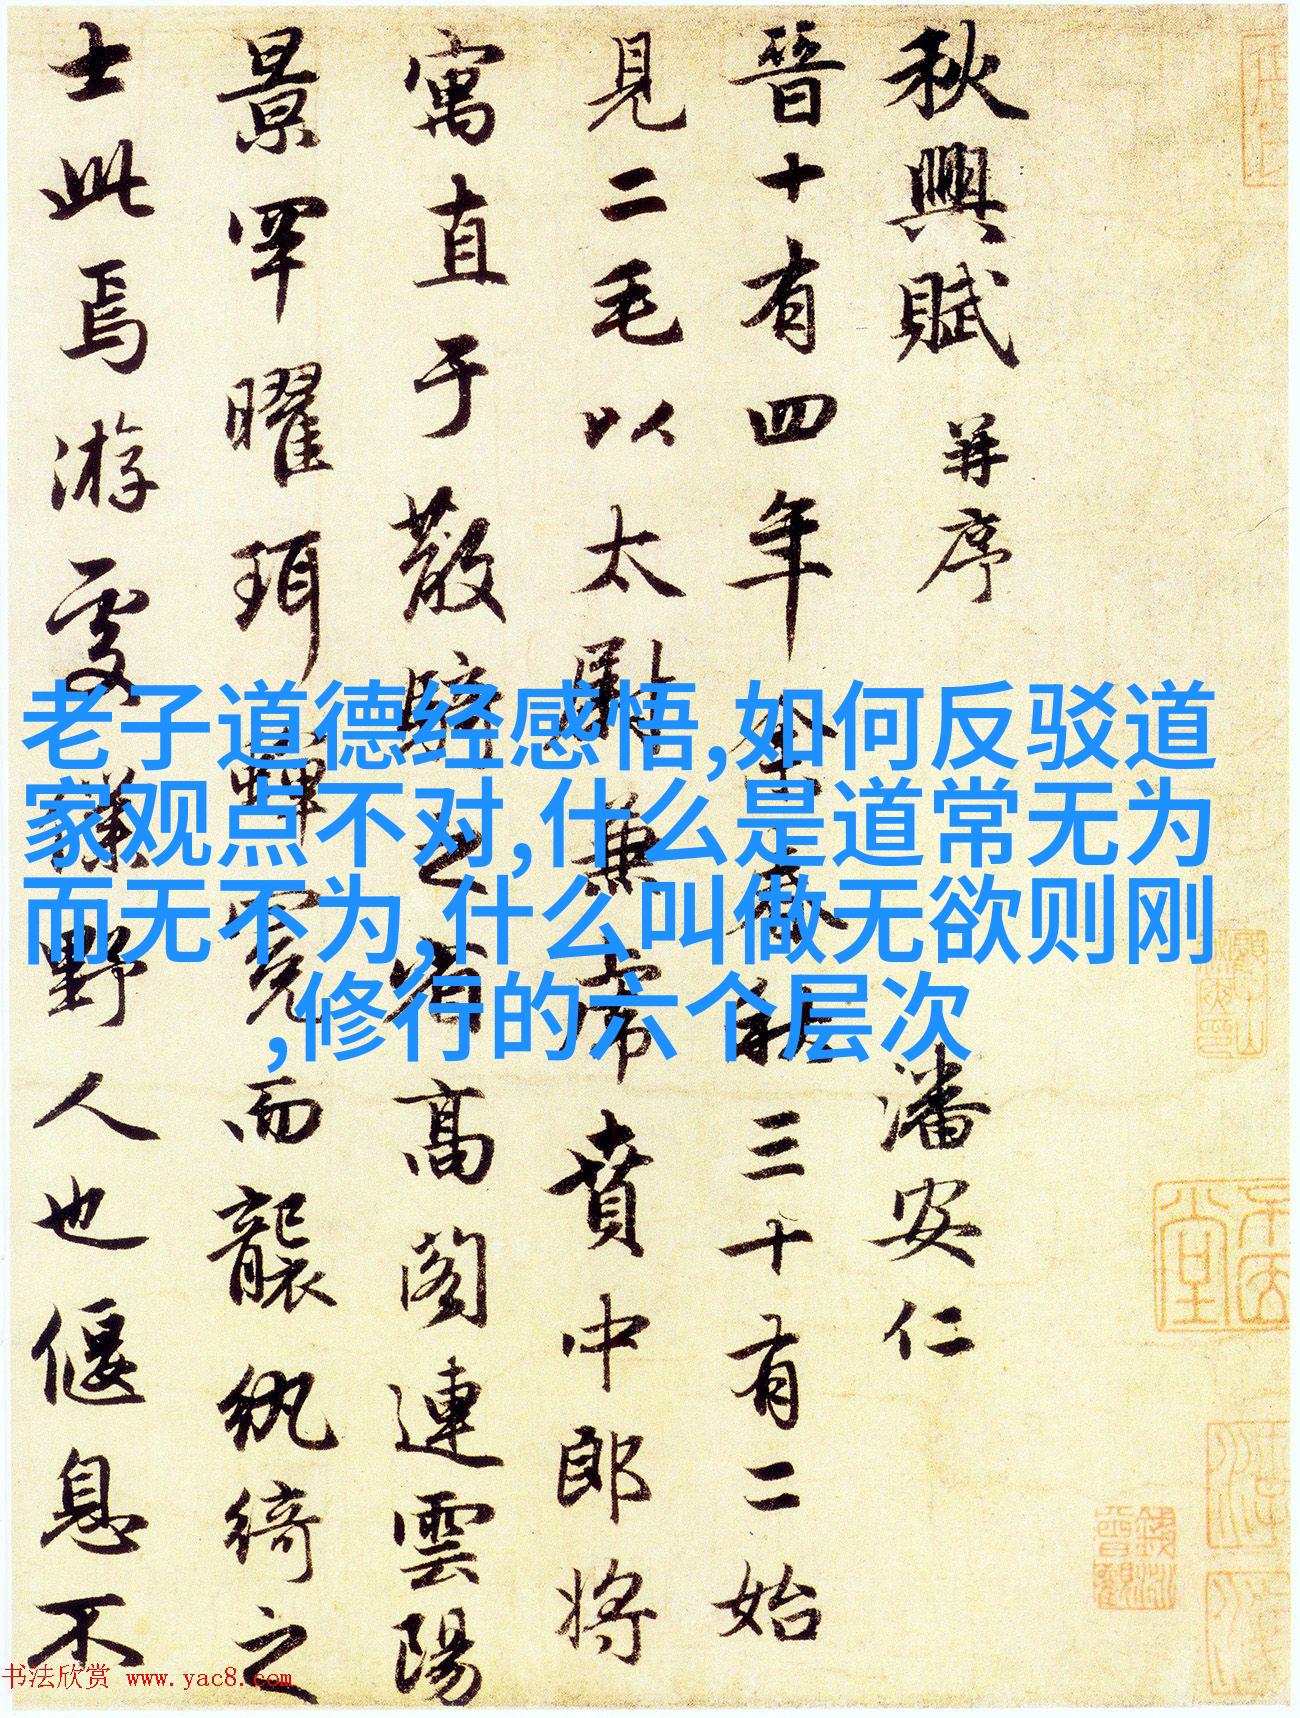 秋興賦 并序 潘安仁
晉十有四年余春秋三十有二始
見二毛以太尉掾兼虎賁中郎將
寓直于散騎之省高閣連雲陽
景罕曜珥蟬冕而襲紈綺之
士此焉游處僕野人也偃息不
老子道德经感悟,如何反驳道
家观点不对,什么是道常无为
而无不为,什么叫做无欲则刚
,修行的六个层次
书法欣赏 www.yac8.com